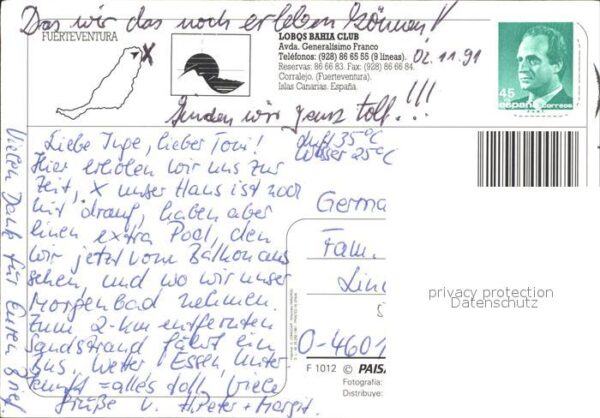 Das wir das noch erleben können!
FUERTEVENTURA
X
LOBOS BAHIA CLUB
Avda. Generalísimo Franco
Teléfonos: (928) 86 65 55 (9 líneas).
Reservas: 86 66 83. Fax: (928) 86 66 84.
Corralejo. (Fuerteventura).
Islas Canarias. España.
02.11.91
45
españa correos
finden wir ganz toll!!!
Luft 35°C
Wasser 25°C
Liebe Inge, lieber Toni!
Hier erholen wir uns zur
Zeit, X unser Haus ist noch
mit drauf, haben aber
einen extra Pool, den
wir jetzt vom Balkon aus
sehen, und wo wir unser
Morgenbad nehmen.
Zum 2-km entfernten
Sandstrand fährt ein
Bus. Wetter, Essen, Unter
kunft = alles toll, viele
Grüße v. H.Peter + Margit
Vielen Dank für Euren Brief
Germa
Fam.
Lin
O-4601
privacy protection
Datenschutz
F 1012 © PAIS
Fotografía:
Distribuye: